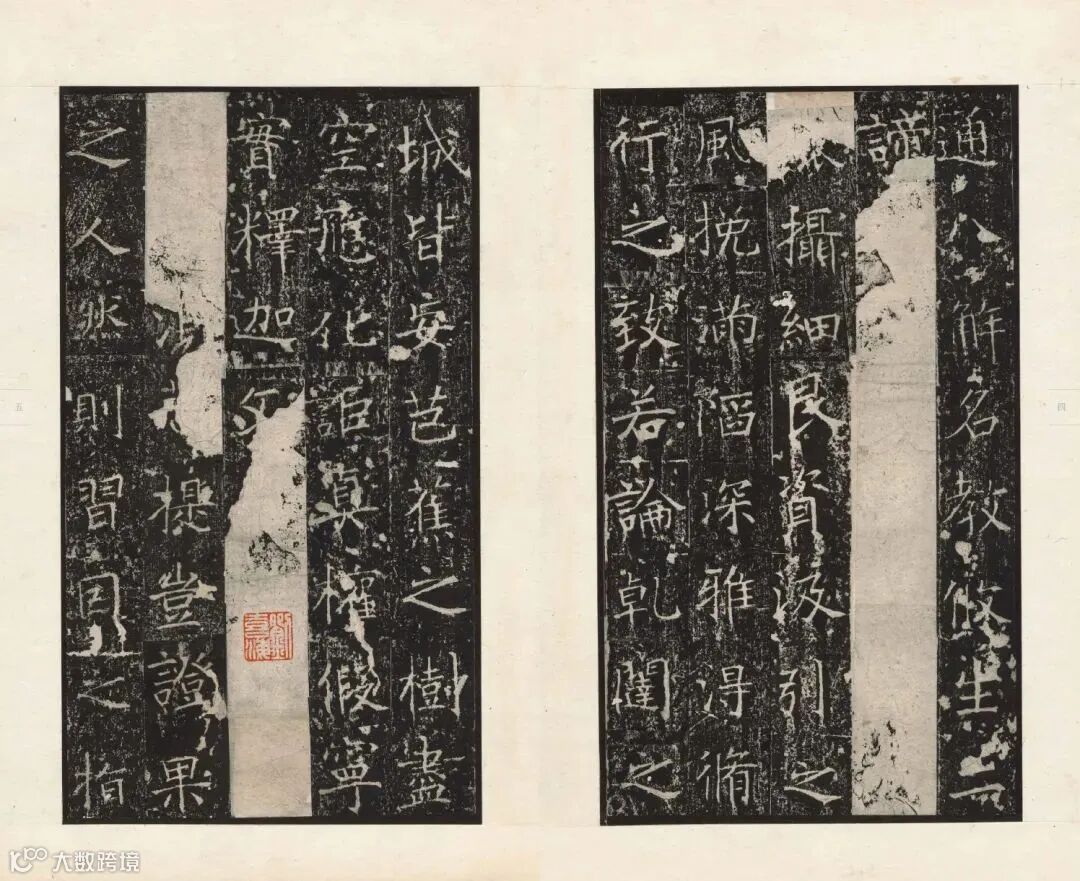 四
通八解名教攸生二
諦
攝細良資汲引之
風挽滿陷深雅得脩
行之致若論乾闥之
城皆妄芭蕉之樹盡
空應化詎真權假寧
實釋迦文
提豈證果
之人然則習因之指
五
大数跨境